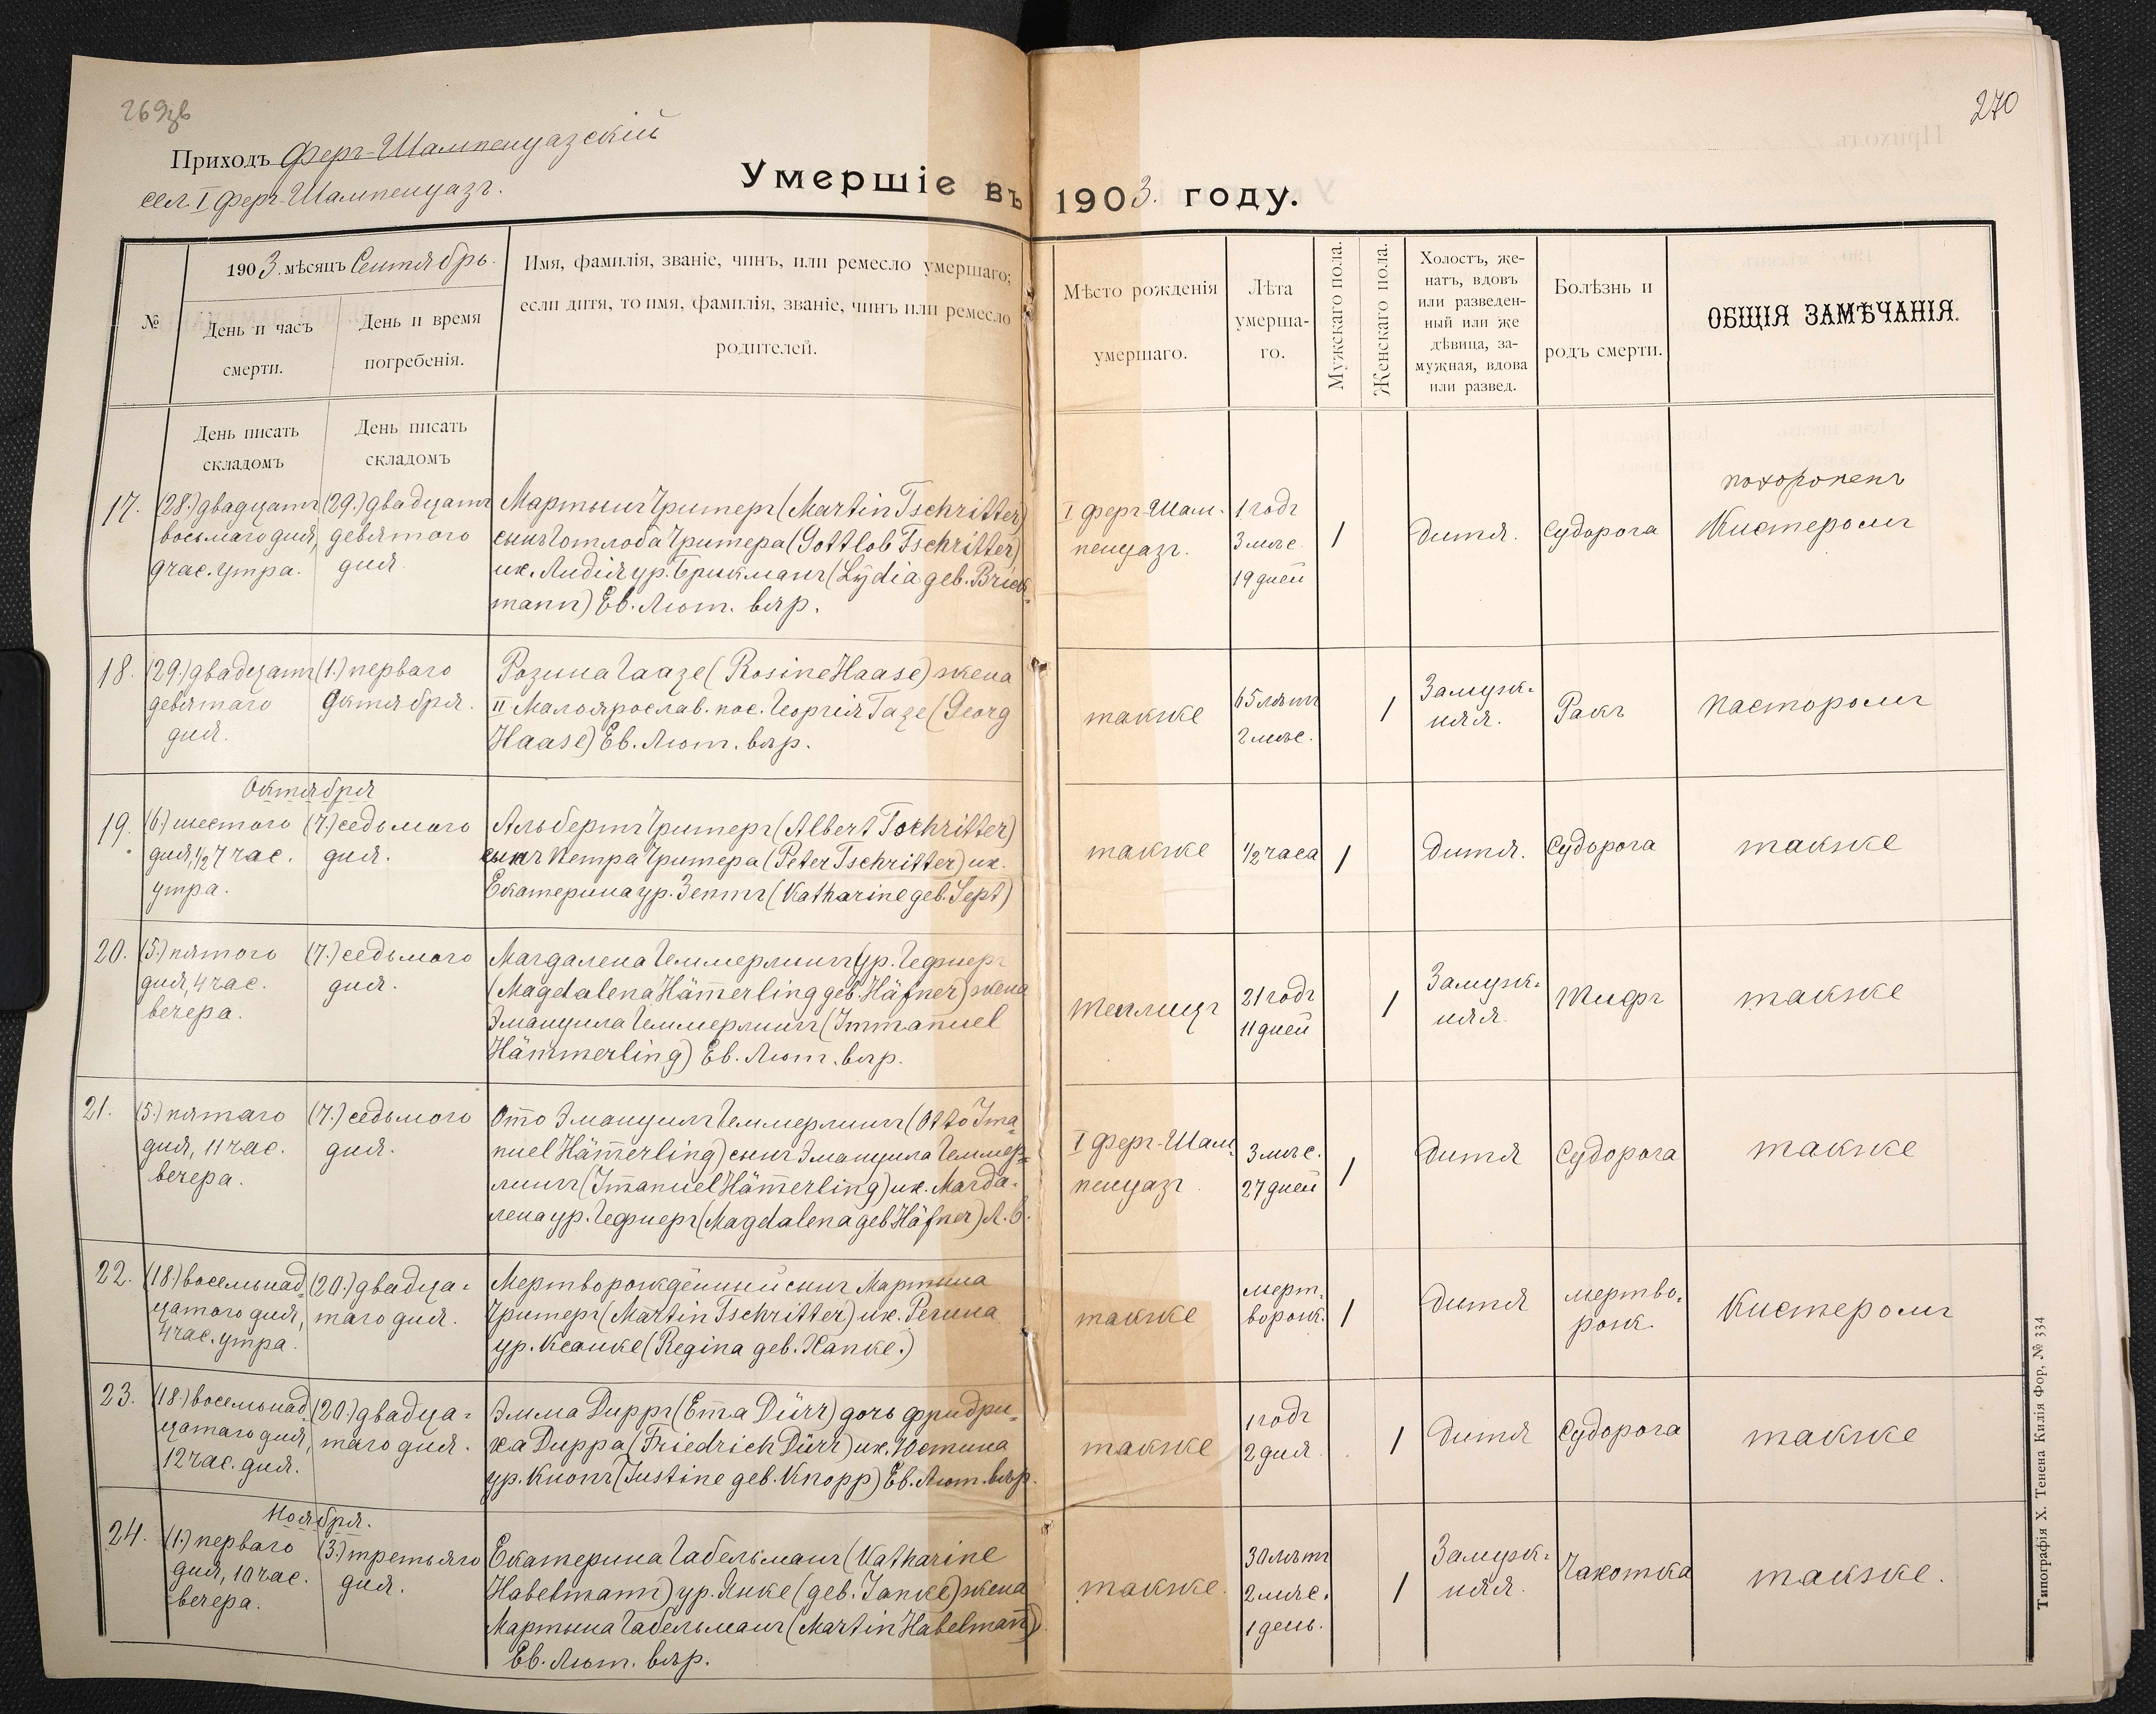 269зв
270
Приходъ Ферг-Шампенуазскій
сел. I Ферг-Шампенуазъ.
Умершіе въ 1903. году.
№
1903. мѣсяцъ Сентябрь.
День и часъ
смерти.
День и время
погребенія.
Имя, фамилія, званіе, чинъ, или ремесло умершаго;
если дитя, то имя, фамилія, званіе, чинъ или ремесло
родителей.
Мѣсто рожденія
умершаго.
Лѣта
умерша-
го.
Мужскаго пола.
Женскаго пола.
Холостъ, же-
натъ, вдовъ
или разведен-
ный или же
дѣвица, за-
мужная, вдова
или развед.
Болѣзнь и
родъ смерти.
ОБЩІЯ ЗАМѢЧАНІЯ.
День писать
складомъ
День писать
складомъ
17.
(28.) двадцать
восьмаго дня,
9 час. утра.
(29.) двадцать
девятого
дня.
Мартынъ Чритеръ (Martin Tschritter)
сынъ Готлоба Чритера (Gottlob Tschritter)
и ж. Лидія ур. Брикманъ (Lydia geb. Brick-
mann) Ев. Лют. вѣр.
I Ферг-Шам-
пенуазъ.
1 годъ
3 мѣс.
19 дней
1
Дитя.
Судорога
похороненъ
Кистеромъ
18.
(29.) двадцать
девятаго
дня.
(1.) перваго
Октября.
Розина Гаазе (Rosine Haase) жена
II Малоярослав. пос. Георгія Газе (Georg
Haase) Ев. Лют. вѣр.
также
65 лѣтъ
2 мѣс.
1
Замуж-
няя.
Ракъ
Пасторомъ
Октября
19.
(6.) шестого
дня, 1/2 7 час.
утра.
(7.) седьмого
дня.
Альбертъ Чритеръ (Albert Tschritter)
сынъ Петра Чритера (Peter Tschritter) и ж.
Екатерина ур. Зептъ (Katharine geb. Sept)
также
1/2 часа
1
Дитя.
Судорога
также
20.
(5.) пятого
дня, 4 час.
вечера.
(7.) седьмого
дня.
Магдалена Геммерлингъ ур. Гефнеръ
(Magdalena Häm̄erling geb. Häfner) жена
Эмануила Геммерлингъ (Immanuel
Hämmerling) Ев. Лют. вѣр.
Теплицъ
21 годъ
11 дней
1
Замуж-
няя.
Тифъ
также
21.
(5.) пятаго
дня, 11 час.
вечера.
(7.) седьмого
дня.
Отто Эмануилъ Геммерлингъ (Otto Im̄a-
nuel Häm̄erling) сынъ Эмануила Геммер-
лингъ (Im̄anuel Häm̄erling) и ж. Магда-
лена ур. Гефнеръ (Magdalena geb Häfner) Л. В.
I Ферг-Шам-
пенуазъ
3 мѣс.
27 дней
1
Дитя
Судорога
также
22.
(18.) восемьнад-
цатого дня,
4 час. утра.
(20.) двадца-
таго дня.
Мертворождённый сынъ Мартына
Чритеръ (Martin Tschritter) и ж. Регина
ур. Ксанке (Regina geb. Xanke.)
также
мерт-
ворож.
1
Дитя
мертво-
рож.
Кистеромъ
23.
(18.) восемьнад-
цатаго дня,
12 час. дня.
(20.) двадца-
таго дня.
Эмма Дирръ (Em̄a Dürr) дочь Фридри-
ха Дирра (Friedrich Dürr) и ж. Юстина
ур. Кнопъ (Justine geb. Knopp) Ев. Лют. вѣр.
также
1 годъ
2 дня
1
Дитя
Судорога
также
Ноября.
24.
(1.) перваго
дня, 10 час.
вечера.
(3.) третьяго
дня.
Екатерина Габельманъ (Katharine
Habelmann) ур. Янке (geb. Janke) жена
Мартына Габельманъ (Martin Habelman̄)
Ев. Лют. вѣр.
также.
30 лѣтъ
2 мѣс.
1 день.
1
Замуж-
няя.
Чахотка
также.
Типографія Х. Тенена Килія Фор, № 334